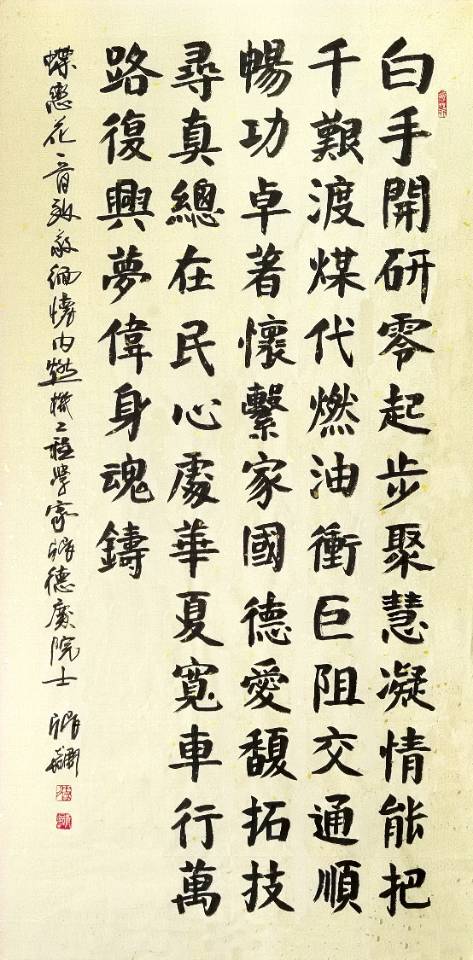 白手開研零起步聚慧凝情能把
千艱渡煤代燃油衝巨阻交通順
暢功卓著懷繫家國德愛馥拓技
尋真總在民心處華夏寬車行萬
路復興夢偉身魂鑄
蝶恋花一首致敬緬懷内燃機工程學家張德慶院士 張